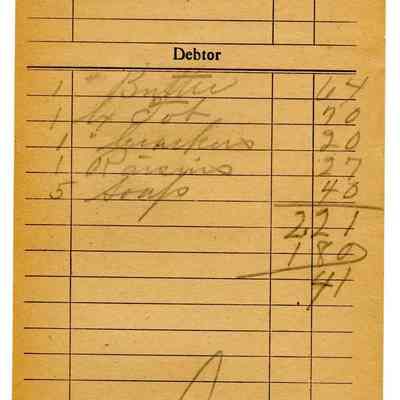 Debtor
1 " Butter 64
1 Bx Tob 70
1 " Crackers 20
1 " Raisins 27
5 Soap 40
2.21
1 80
.41